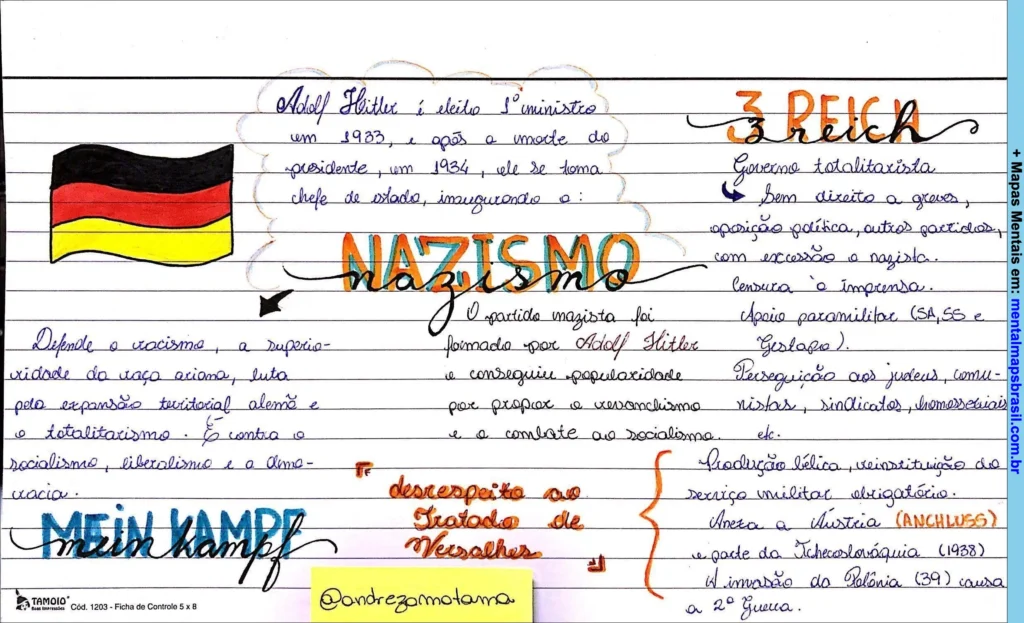 Adolf Hitler é eleito 1º ministro
em 1933, e após a morte do
presidente, em 1934, ele se torna
chefe de estado, inaugurando o:
NAZISMO
nazismo
O partido nazista foi
formado por Adolf Hitler
e conseguiu popularidade
por propor o revanchismo
e o combate ao socialismo.
Defende o racismo, a superio-
ridade da raça ariana, luta
pela expansão territorial alemã e
o totalitarismo. É contra o
socialismo, liberalismo e a demo-
cracia.
MEIN KAMPF
mein kampf
desrespeito ao
Tratado de
Versalhes
3 REICH
3 reich
Governo totalitarista
Sem direito a greves,
oposição política, outros partidos,
com excessão o nazista.
Censura à imprensa.
Apoio paramilitar (SA, SS e
Gestapo).
Perseguição aos judeus, comu-
nistas, sindicatos, homossexuais
etc.
Produção bélica, reinstituição do
serviço militar obrigatório.
Anexa a Áustria (ANCHLUSS)
e parte da Tchecoslováquia (1938)
A invasão da Polônia (39) causa
a 2ª Guerra.
@andrezamotama
TAMOIO
Boas Impressões
Cód. 1203 - Ficha de Controle 5 x 8
+ Mapas Mentais em: mentalmapsbrasil.com.br